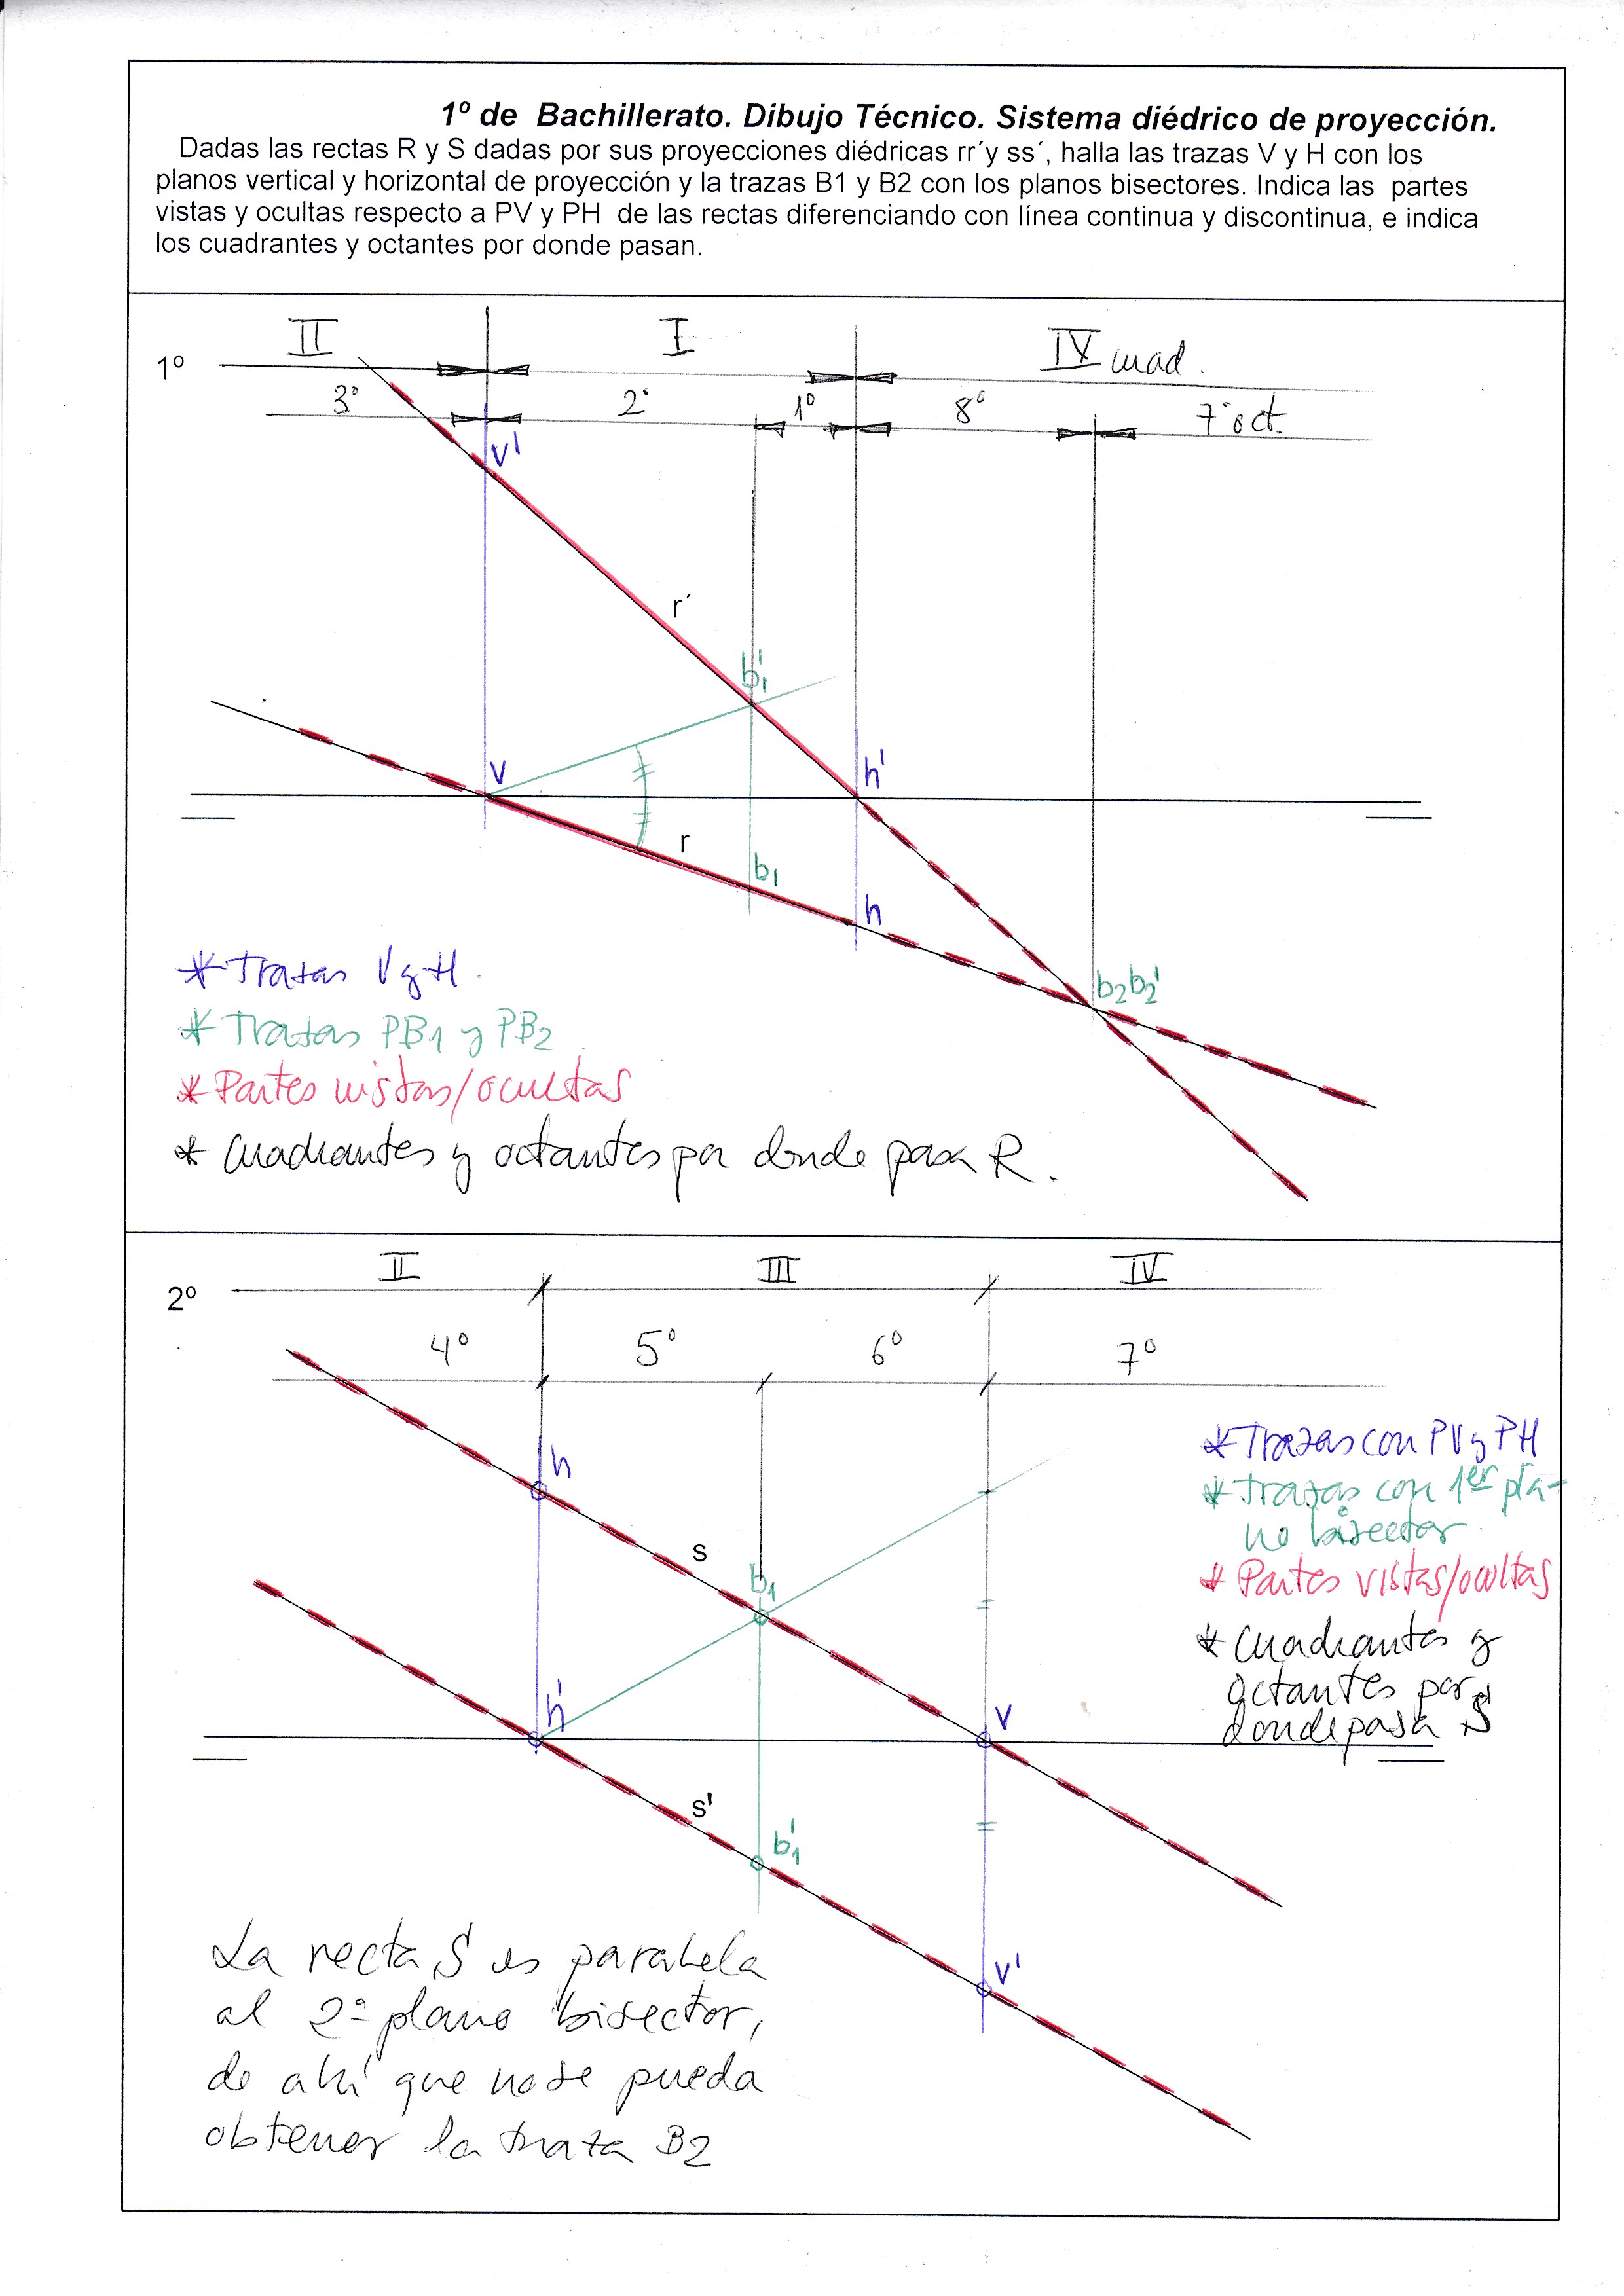 1º de Bachillerato. Dibujo Técnico. Sistema diédrico de proyección.
Dadas las rectas R y S dadas por sus proyecciones diédricas rr´y ss´, halla las trazas V y H con los
planos vertical y horizontal de proyección y la trazas B1 y B2 con los planos bisectores. Indica las partes
vistas y ocultas respecto a PV y PH de las rectas diferenciando con línea continua y discontinua, e indica
los cuadrantes y octantes por donde pasan.
II I IV cuad.
1º
3º 2º 1º 8º 7º oct.
v'
r´
b1'
v h'
r
b1
h
b2b2'
* Trazas V y H.
* Trazas PB1 y PB2
* Partes vistas/ocultas
* Cuadrantes y octantes por donde pasa R.
II III IV
2º
4º 5º 6º 7º
h
s
b1
h' v
s'
b1'
v'
* Trazas con PV y PH
* Trazas con 1er pla-
no bisector
* Partes vistas/ocultas
* Cuadrantes y
octantes por
donde pasa S
La recta S es paralela
al 2º plano bisector,
de ahí que no se pueda
obtener la traza B2